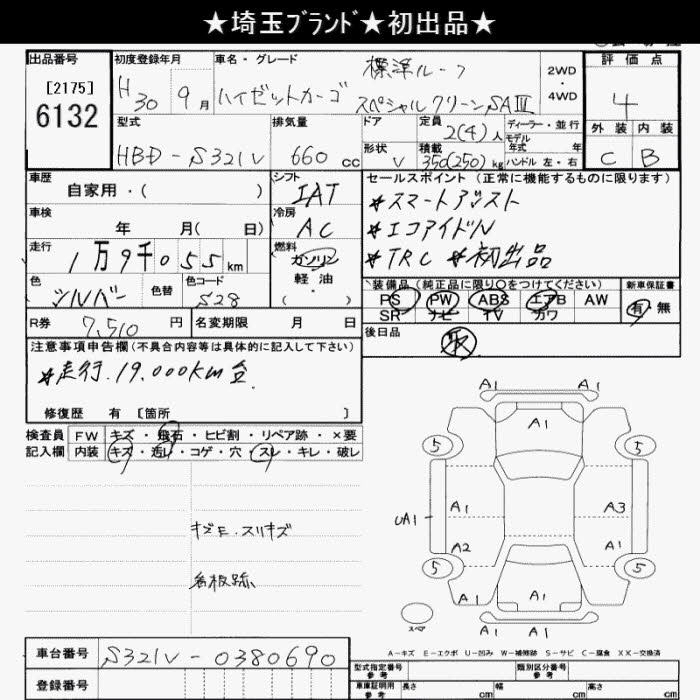 ★埼玉ﾌﾞﾗﾝﾄﾞ★初出品★
出品番号 初度登録年月 車名・グレード 標準ルーフ 2WD・4WD 評価点
[2175]
6132
H30 9月 ハイゼットカーゴ スペシャルクリーンSAⅢ 4
型式 排気量 ドア 定員 2(4)人 ディーラー・並行 外装 内装
モデル年式 年
HBD-S321V 660cc 形状 V 積載 350(250)kg ハンドル 左・右 C B
車歴 シフト セールスポイント (正常に機能するものに限ります)
自家用・( ) IAT *スマートアシスト
車検 冷房 *エコアイドル
年 月( 日) AC *TRC *初出品
走行 燃料
1万9千055km ガソリン
軽油
・( )
装備品(純正品に限り○をつけてください) 新車保証書
色 色替 色コード PS PW ABS エアB AW 有・無
シルバー S28 SR ナビ TV カワ
R券 7,510円 名変期限 月 日 後日品
注意事項申告欄(不具合内容等は具体的に記入して下さい) 取
*走行.19.000km台.
修復歴 有 [箇所 ]
検査員 FW キズ・飛石・ヒビ割・リペア跡・×要
記入欄 内装 キズ・汚レ・コゲ・穴・スレ・キレ・破レ
キズE.スリキズ
看板跡
A1 A1
A1
5 5
A1 A3
UA1
A2 A1
5 5
A1
A1 A1
スペア
A-キズ E-エクボ U-凹み W-補修跡 S-サビ C-腐食 XX-交換済
車台番号 S321V-0380690
型式指定番号 参考 類別区分番号 参考
登録番号 車庫証明用 参考 長さ cm 幅 cm 高さ cm